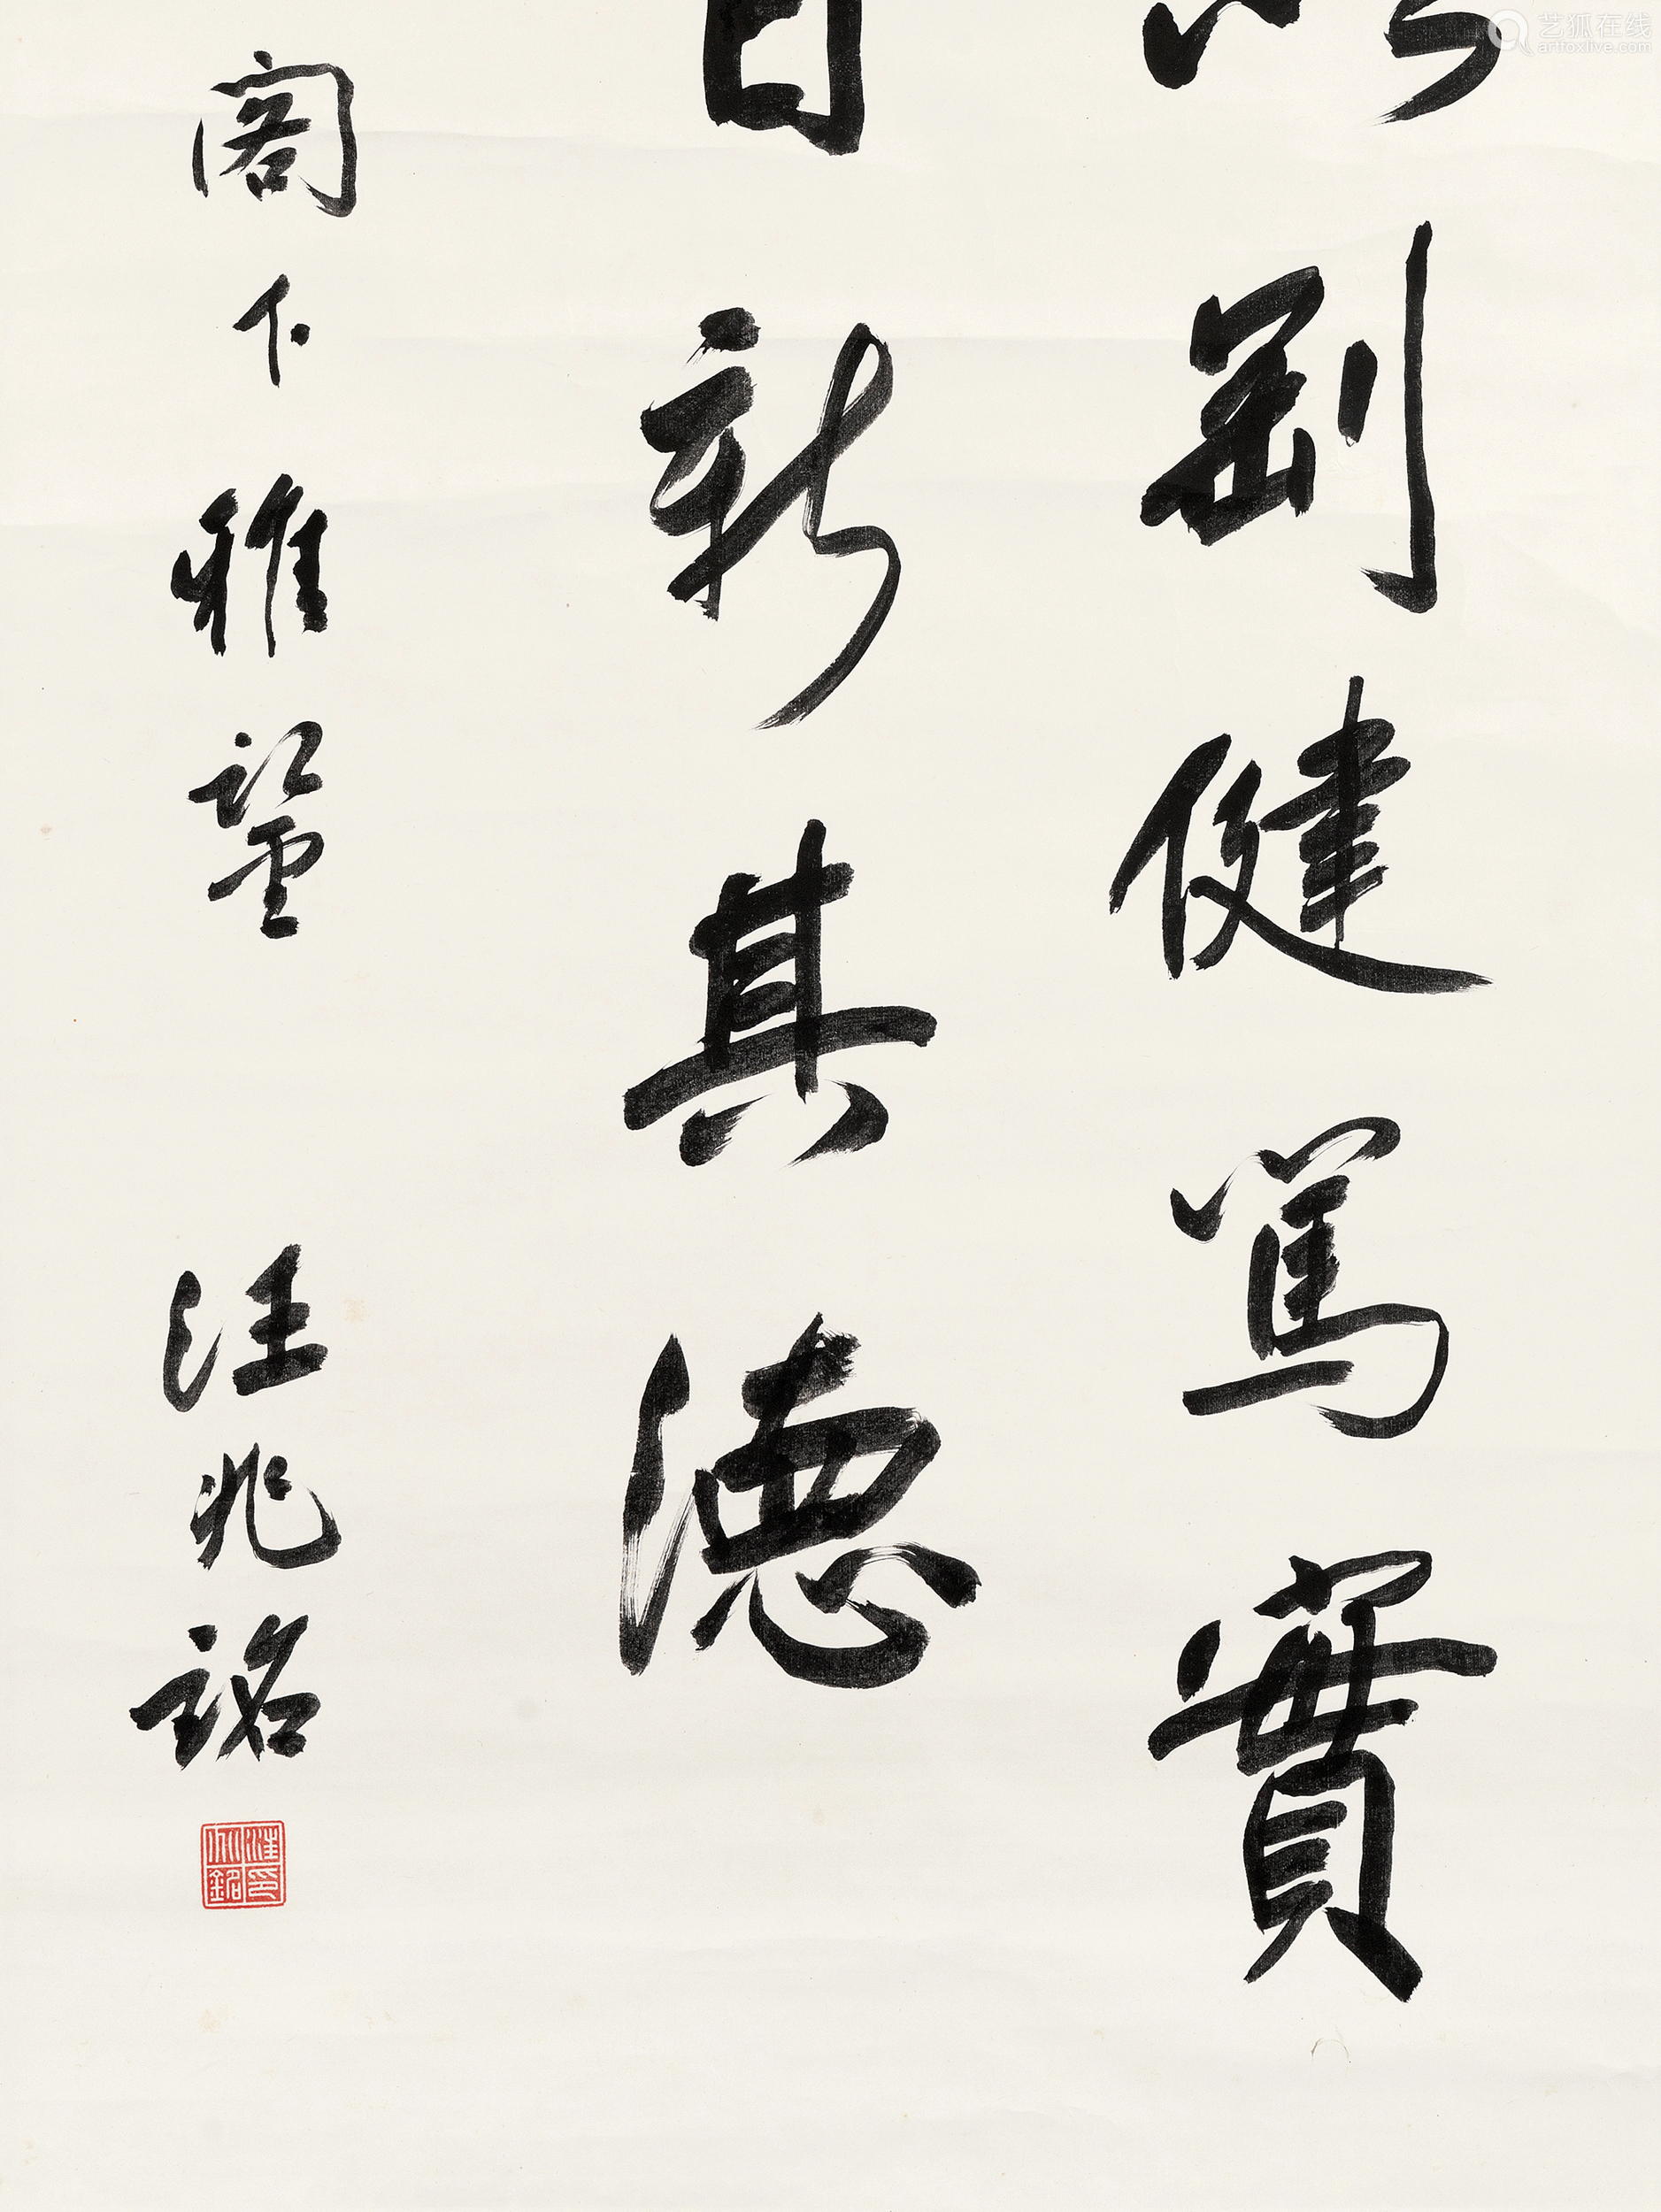 剛健篤實
日新其德
閣下雅鑒
汪兆銘
汪兆銘印
艺狐在线
artfoxlive.com